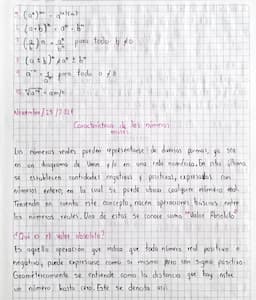 (aⁿ)ᵐ = aⁿ⁽ᵐ⁾
(a·b)ⁿ = aⁿ · bⁿ
(a/b)ⁿ = aⁿ/bⁿ para todo b ≠ 0
(a ± b)ⁿ ≠ aⁿ ± bⁿ
a⁻ⁿ = 1/aⁿ para todo a ≠ 0
Noviembre / 25 /
Características de los números
reales
Los números reales pueden representarse de diversas formas, ya sea
en un diagrama de Venn y/o en una recta numérica. En esta última
se establecen cantidades negativas y positivas, expresadas con
números enteros, en la cual se puede ubicar cualquier número real.
Teniendo en cuenta este concepto, nacen operaciones básicas entre
los números reales. Una de estas se conoce como "Valor Absoluto"
¿Qué es el valor absoluto?
Es aquella operación que indica que todo número real positivo o
negativo, puede expresarse como si mismo pero con signo positivo.
Geométricamente se entiende como la distancia que hay entre
un número, hasta cero. Este se denota así: